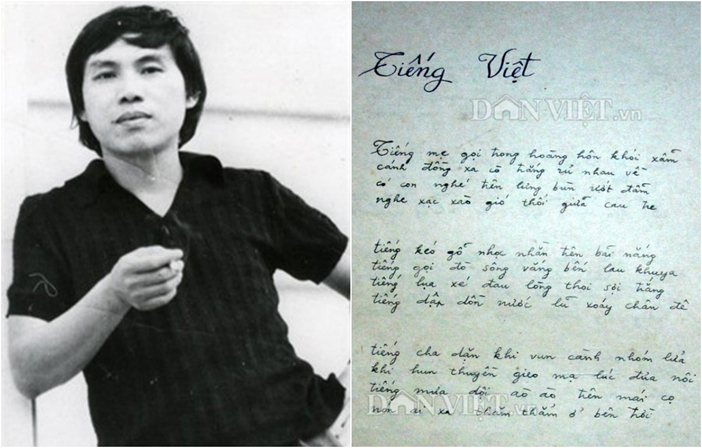 Tiếng Việt
DANVIỆT.vn
Tiếng mẹ gọi trong hoàng hôn khói xẫm
cánh đồng xa cò trắng rủ nhau về
có con nghé trên lưng bùn ướt đẫm
nghe xạc xào gió thổi giữa cau tre
tiếng kéo gỗ nhọc nhằn trên bãi nắng
tiếng gọi đò sông vắng bến lau khuya
tiếng lụa xé đau lòng thoi sợi trắng
tiếng dập dồn nước lũ xoáy chân đê
tiếng cha dặn khi vun cành nhóm lửa
khi hun thuyền gieo mạ lúc đưa nôi
tiếng mưa dội ào ào trên mái cọ
DANVIỆT.vn
nón ai xa thăm thẳm ở bên trời